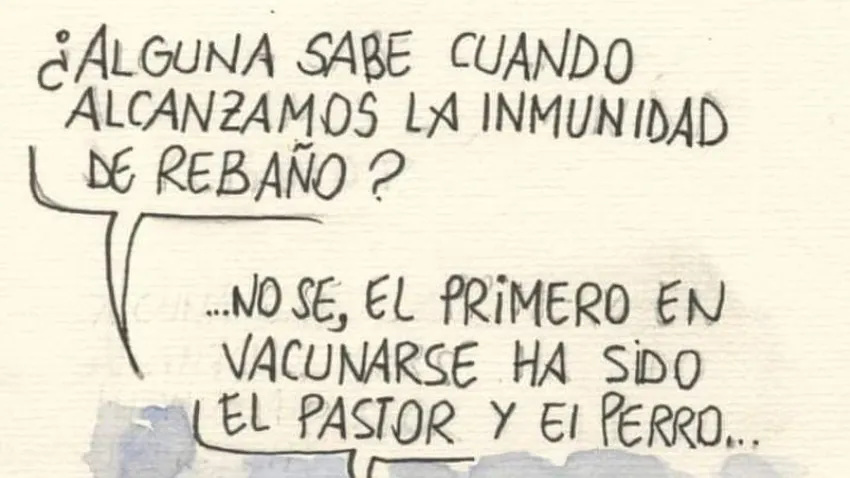 ¿ALGUNA SABE CUANDO
ALCANZAMOS LA INMUNIDAD
DE REBAÑO?
...NO SE, EL PRIMERO EN
VACUNARSE HA SIDO
EL PASTOR Y El PERRO...